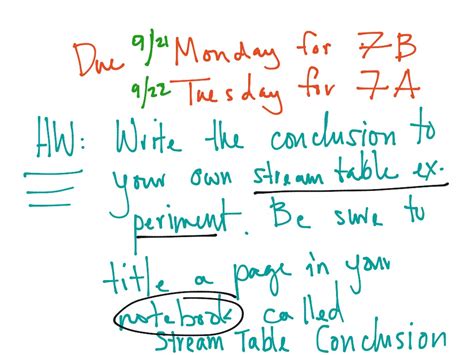 Due 9/21 Monday for 7B
9/22 Tuesday for 7A
HW: Write the conclusion to
your own stream table ex-
periment. Be sure to
title a page in your
notebook called
Stream Table Conclusion